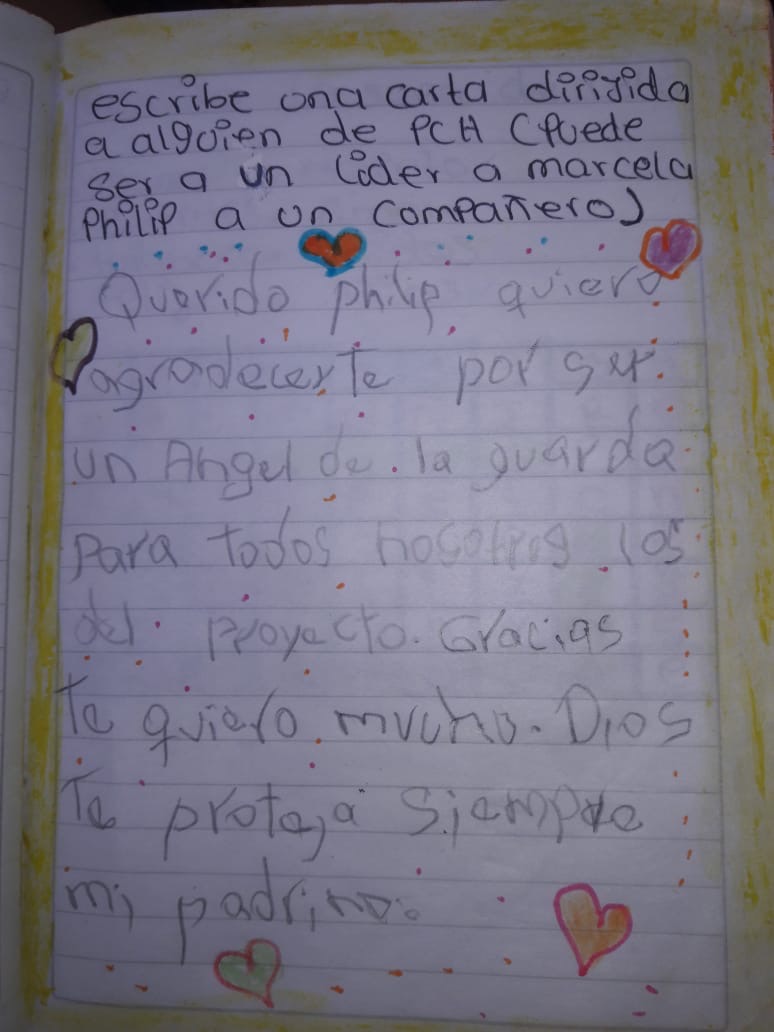 escribe una carta dirigida
a alguien de PCH (Puede
Ser a un lider a marcela
Philip a un compañero)
Querido philip quiero
agradecerte por ser
un Angel de la guarda
para todos nosotros los
del proyecto. Gracias
te quiero mucho. Dios
Te proteja siempre
mi padrino.